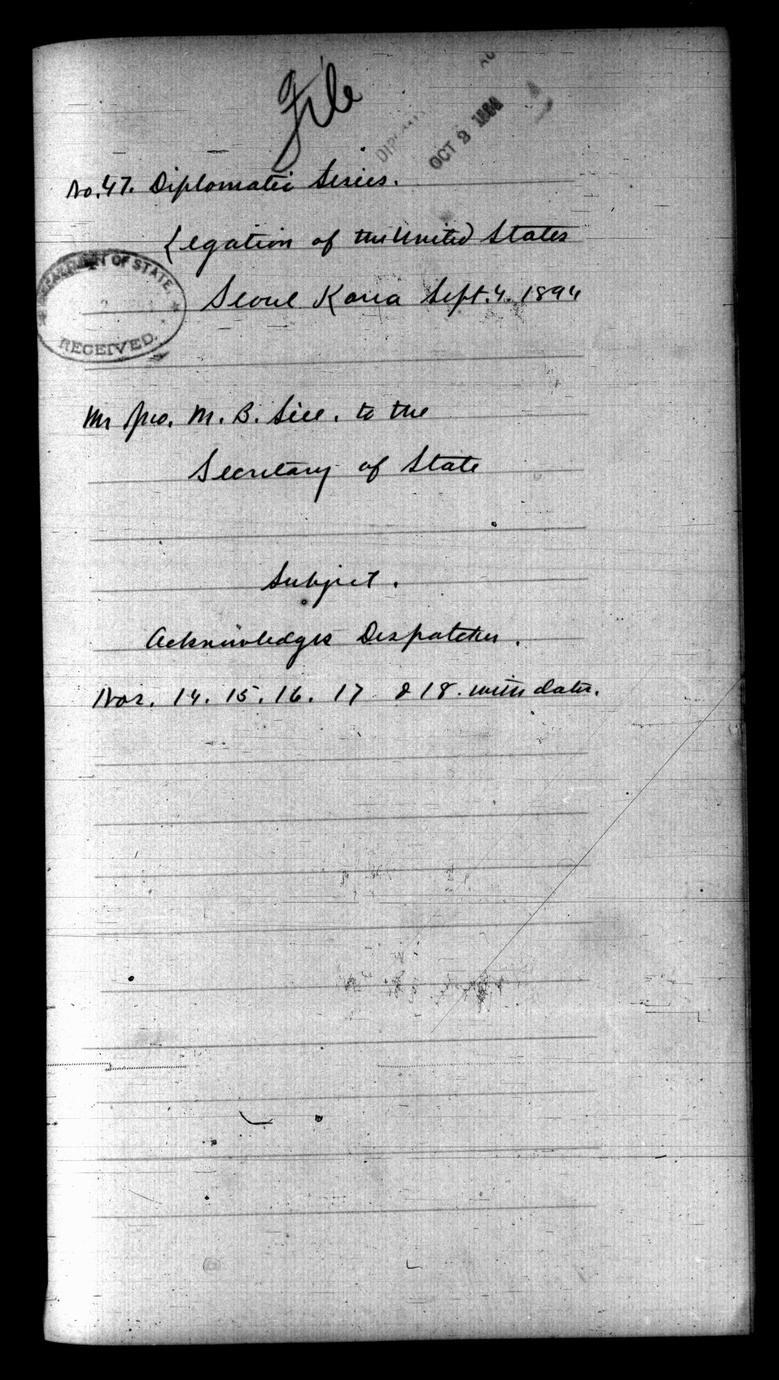 File
OCT 2 1894
No. 47. Diplomatic Series.
Legation of the United States
DEPARTMENT OF STATE.
RECEIVED.
Seoul Korea Sept. 4. 1894
Mr Jno. M. B. Sill. to the
Secretary of State
Subject.
Acknowledges Despatches.
Nos. 14. 15. 16. 17 & 18. with dates.